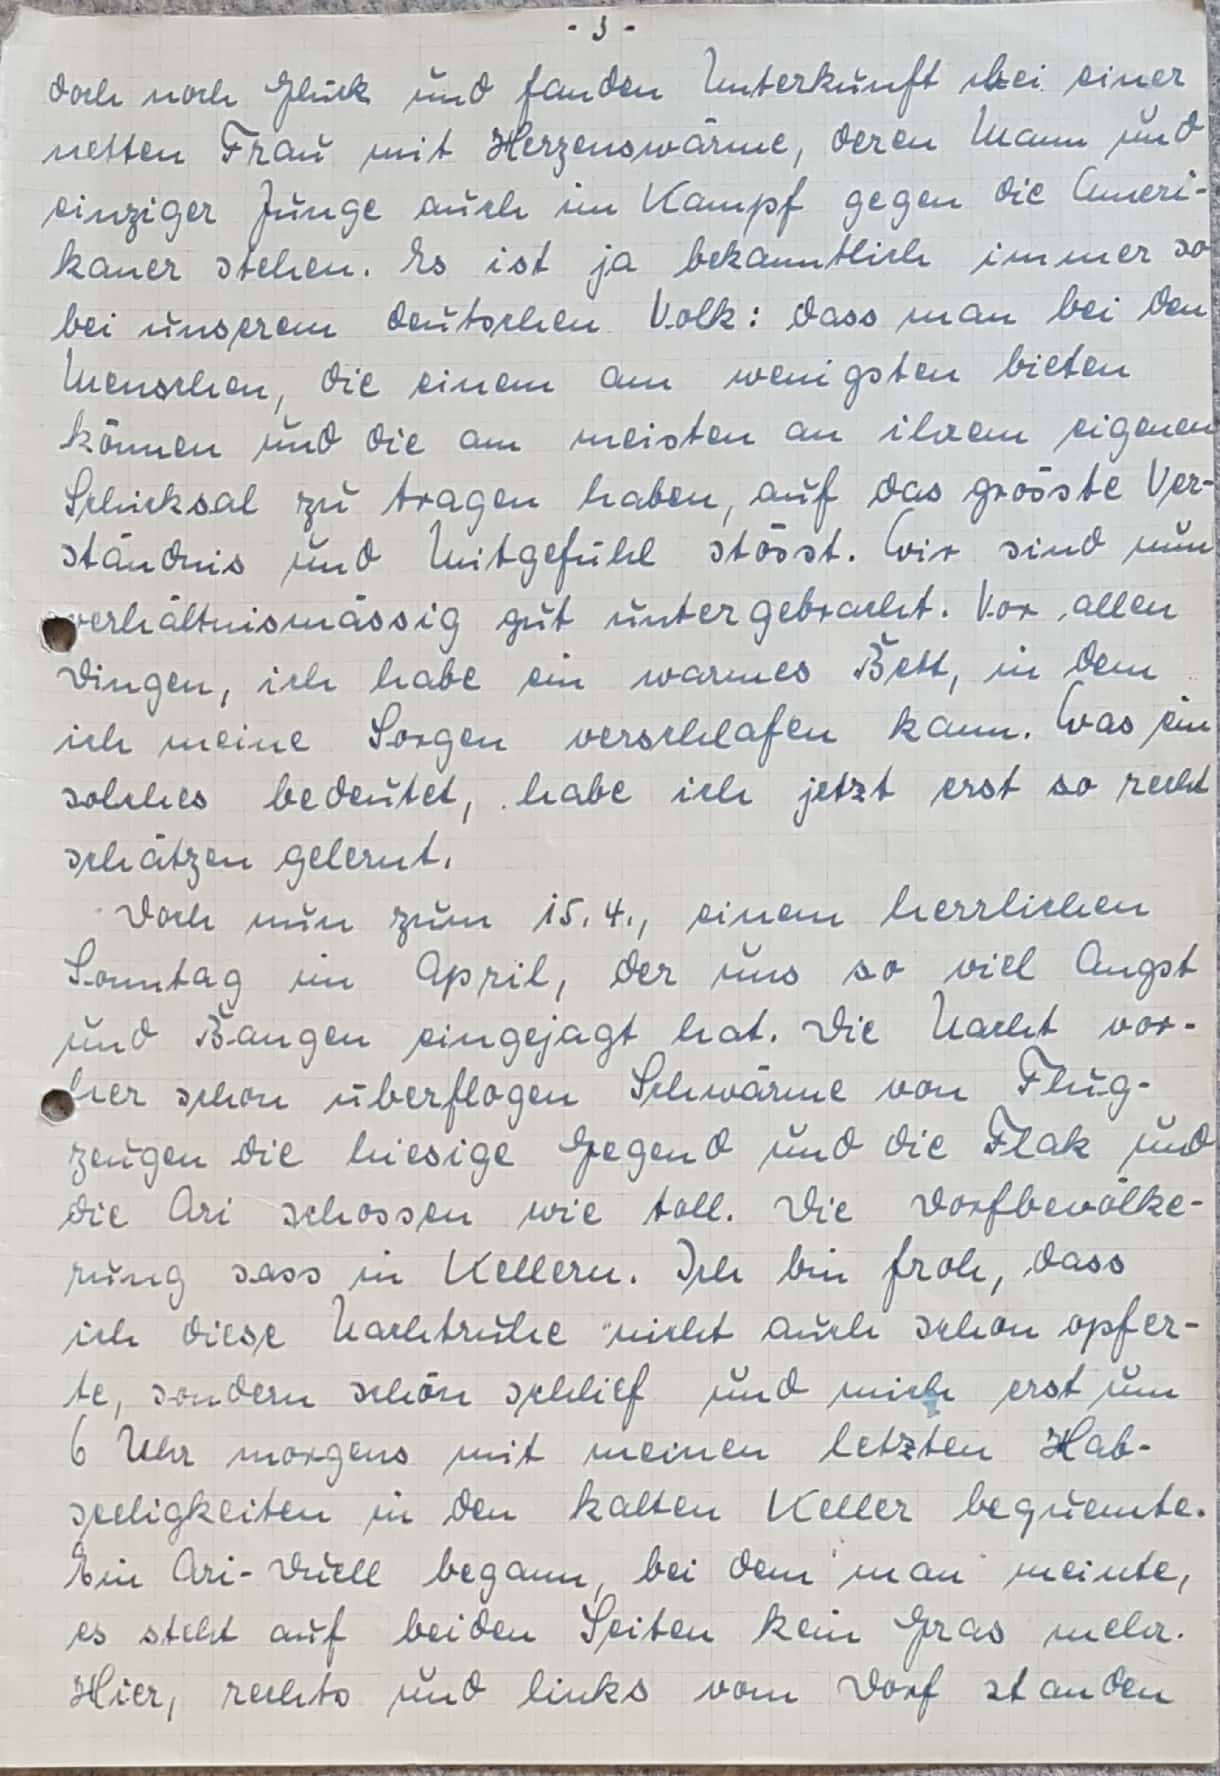 - 3 -
doch noch Glück und fanden Unterkunft bei einer
netten Frau mit Herzenswärme, deren Mann und
einziger Junge auch im Kampf gegen die Ameri-
kaner stehen. Es ist ja bekanntlich immer so
bei unserem deutschen Volk: dass man bei den
Menschen, die einem am wenigsten bieten
können und die am meisten an ihrem eigenen
Schicksal zu tragen haben, auf das grösste Ver-
ständnis und Mitgefühl stösst. Wir sind nun
verhältnismässig gut untergebracht. Vor allen
Dingen, ich habe ein warmes Bett, in dem
ich meine Sorgen verschlafen kann. Was ein
solches bedeutet, habe ich jetzt erst so recht
schätzen gelernt.
Doch nun zum 15.4., einem herrlichen
Sonntag im April, der uns so viel Angst
und Bangen eingejagt hat. Die Nacht vor-
her schon überflogen Schwärme von Flug-
zeugen die hiesige Gegend und die Flak und
die Ari schossen wie toll. Die Dorfbevölke-
rung sass in Kellern. Ich bin froh, dass
ich diese Nachtruhe nicht auch schon opfer-
te, sondern schön schlief und mich erst um
6 Uhr morgens mit meinen letzten Hab-
seeligkeiten in den kalten Keller bequemte.
Ein Ari-Duell begann, bei dem man meinte,
es steht auf beiden Seiten kein Gras mehr.
Hier, rechts und links vom Dorf standen